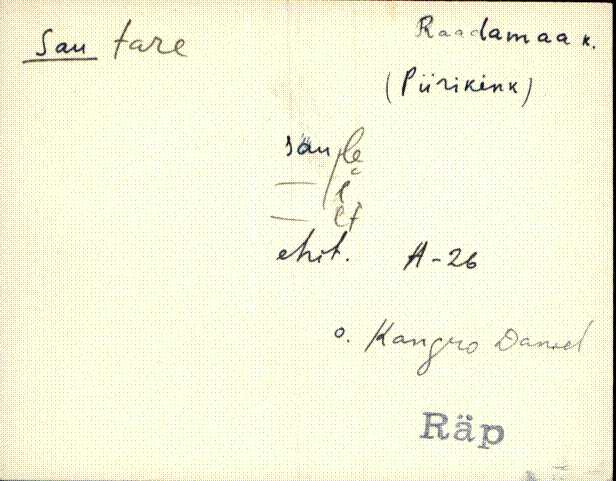 Sau tare
Raadamaa k.
(Piirikink)
sau/le
— l
— lt
ehit. A-26
o. Kangro Daniel
Räp